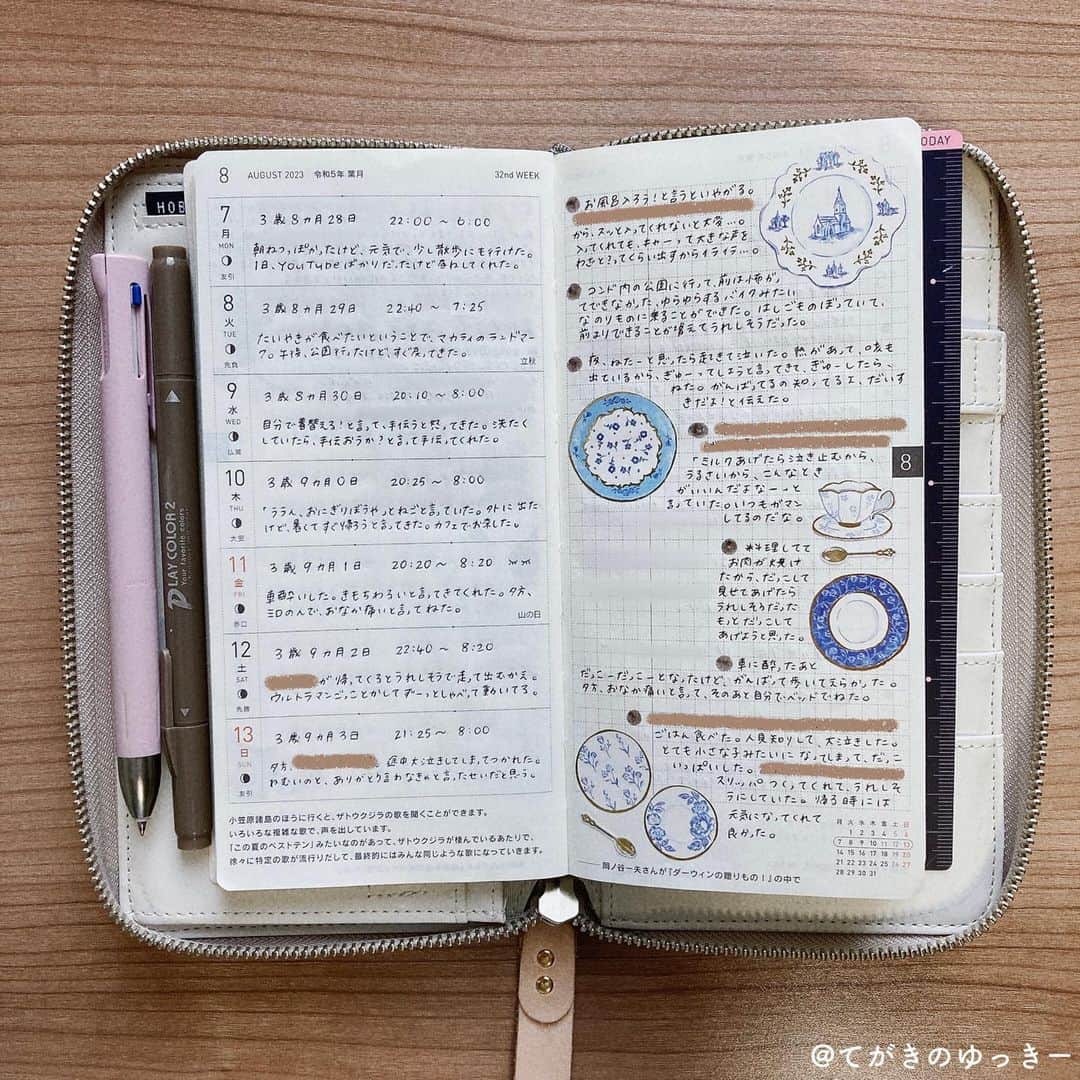 8 AUGUST 2023 令和5年 葉月 32nd WEEK
7 3歳8ヵ月28日 22:00 ~ 6:00
月
MON
友引
朝ねつっぽかったけど、元気で、少し散歩にも行けた。
1日、YouTubeばかりだったけど
8 3歳8ヵ月29日 22:40 ~ 7:25
火
TUE
先負
たいやきが食べたいということで、マカティのランドマー
ク。午後、公園行ったけど、すぐ戻ってきた。
立秋
9 3歳8ヵ月30日 20:10 ~ 8:00
水
WED
仏滅
自分で着替える!と言って、手伝うと怒ってきた。洗たく
していたら、手伝おうか?と言って手伝ってくれた。
10 3歳9ヵ月0日 20:25 ~ 8:00
木
THU
大安
「ううん、おにぎりぼうや」とねごと言っていた。外に出た
けど、暑くてすぐ帰ろうと言ってきた。カフェでお茶した。
11 3歳9ヵ月1日 20:20 ~ 8:20
金
FRI
赤口
車酔いした。きもちわるいと言ってきてくれた。夕方、
ミロのんで、おなか痛いと言ってねた。
山の日
12 3歳9ヵ月2日 22:40 ~ 8:20
土
SAT
先勝
が帰ってくるとうれしそうで走って出むかえ。
ウルトラマンごっことかしてずーっとしゃべって動いてる。
13 3歳9ヵ月3日 21:25 ~ 8:00
日
SUN
友引
夕方、 途中大泣きしてしまってつかれた。
ねむいのと、ありがとう言わなきゃと言ったせいだと思う。
小笠原諸島のほうに行くと、ザトウクジラの歌を聞くことができます。
いろいろな複雑な歌で、声を出しています。
「この夏のベストテン」みたいなのがあって、ザトウクジラが棲んでいるあたりで、
徐々に特定の歌が流行りだして、最終的にはみんな同じような歌になっていきます。
HOB
PLAY COLOR 2
Your favorite colors
ODAY
お風呂入ろう!と言うといやがる。
から、スッと入ってくれないと大変…。
入ってくれても、キャーって大きな声を
わざと?ってくらい出すからイライラ…。
コンド内の公園に行って、前は怖が
てできなかった、ゆらゆらするバイクみたい
なのりものに乗ることができた。はしごものぼっていて、
前よりできることが増えてうれしそうだった。
夜、ねたーと思ったら起きて泣いた。熱があって、咳も
出ているから、ぎゅーってしようと言ってきて、ぎゅーしたら、
ねた。がんばってるの知ってるよ、だいす
きだよ!と伝えた。
「ミルクあげたら泣き止むから、
うるさいから、こんなとき
がいいんだよなーっと
言っていた。いつもガマン
してるのだな。
8
料理してて
お肉が焼け
たから、だっこして
見せてあげたら
うれしそうだった
もっとだっこして
あげようと思った。
車に酔ったあと
だっこーだっこーとなったけど、がんばって歩いてえらかった。
夕方、おなか痛いと言って、そのあと自分でベッドでねた。
ごはん食べた。人見知りして、大泣きした。
とても小さな子みたいになってしまって、だっこ
いっぱいした。
スリッパつくってくれて、うれしそ
うにしていた。帰る時には
元気になってくれて
良かった。
月 火 水 木 金 土 日
1 2 3 4 5 6
7 8 9 10 11 12 13
14 15 16 17 18 19 20
21 22 23 24 25 26 27
28 29 30 31
岡ノ谷一夫さんが『ダーウィンの贈りものⅠ』の中で
@てがきのゆっきー